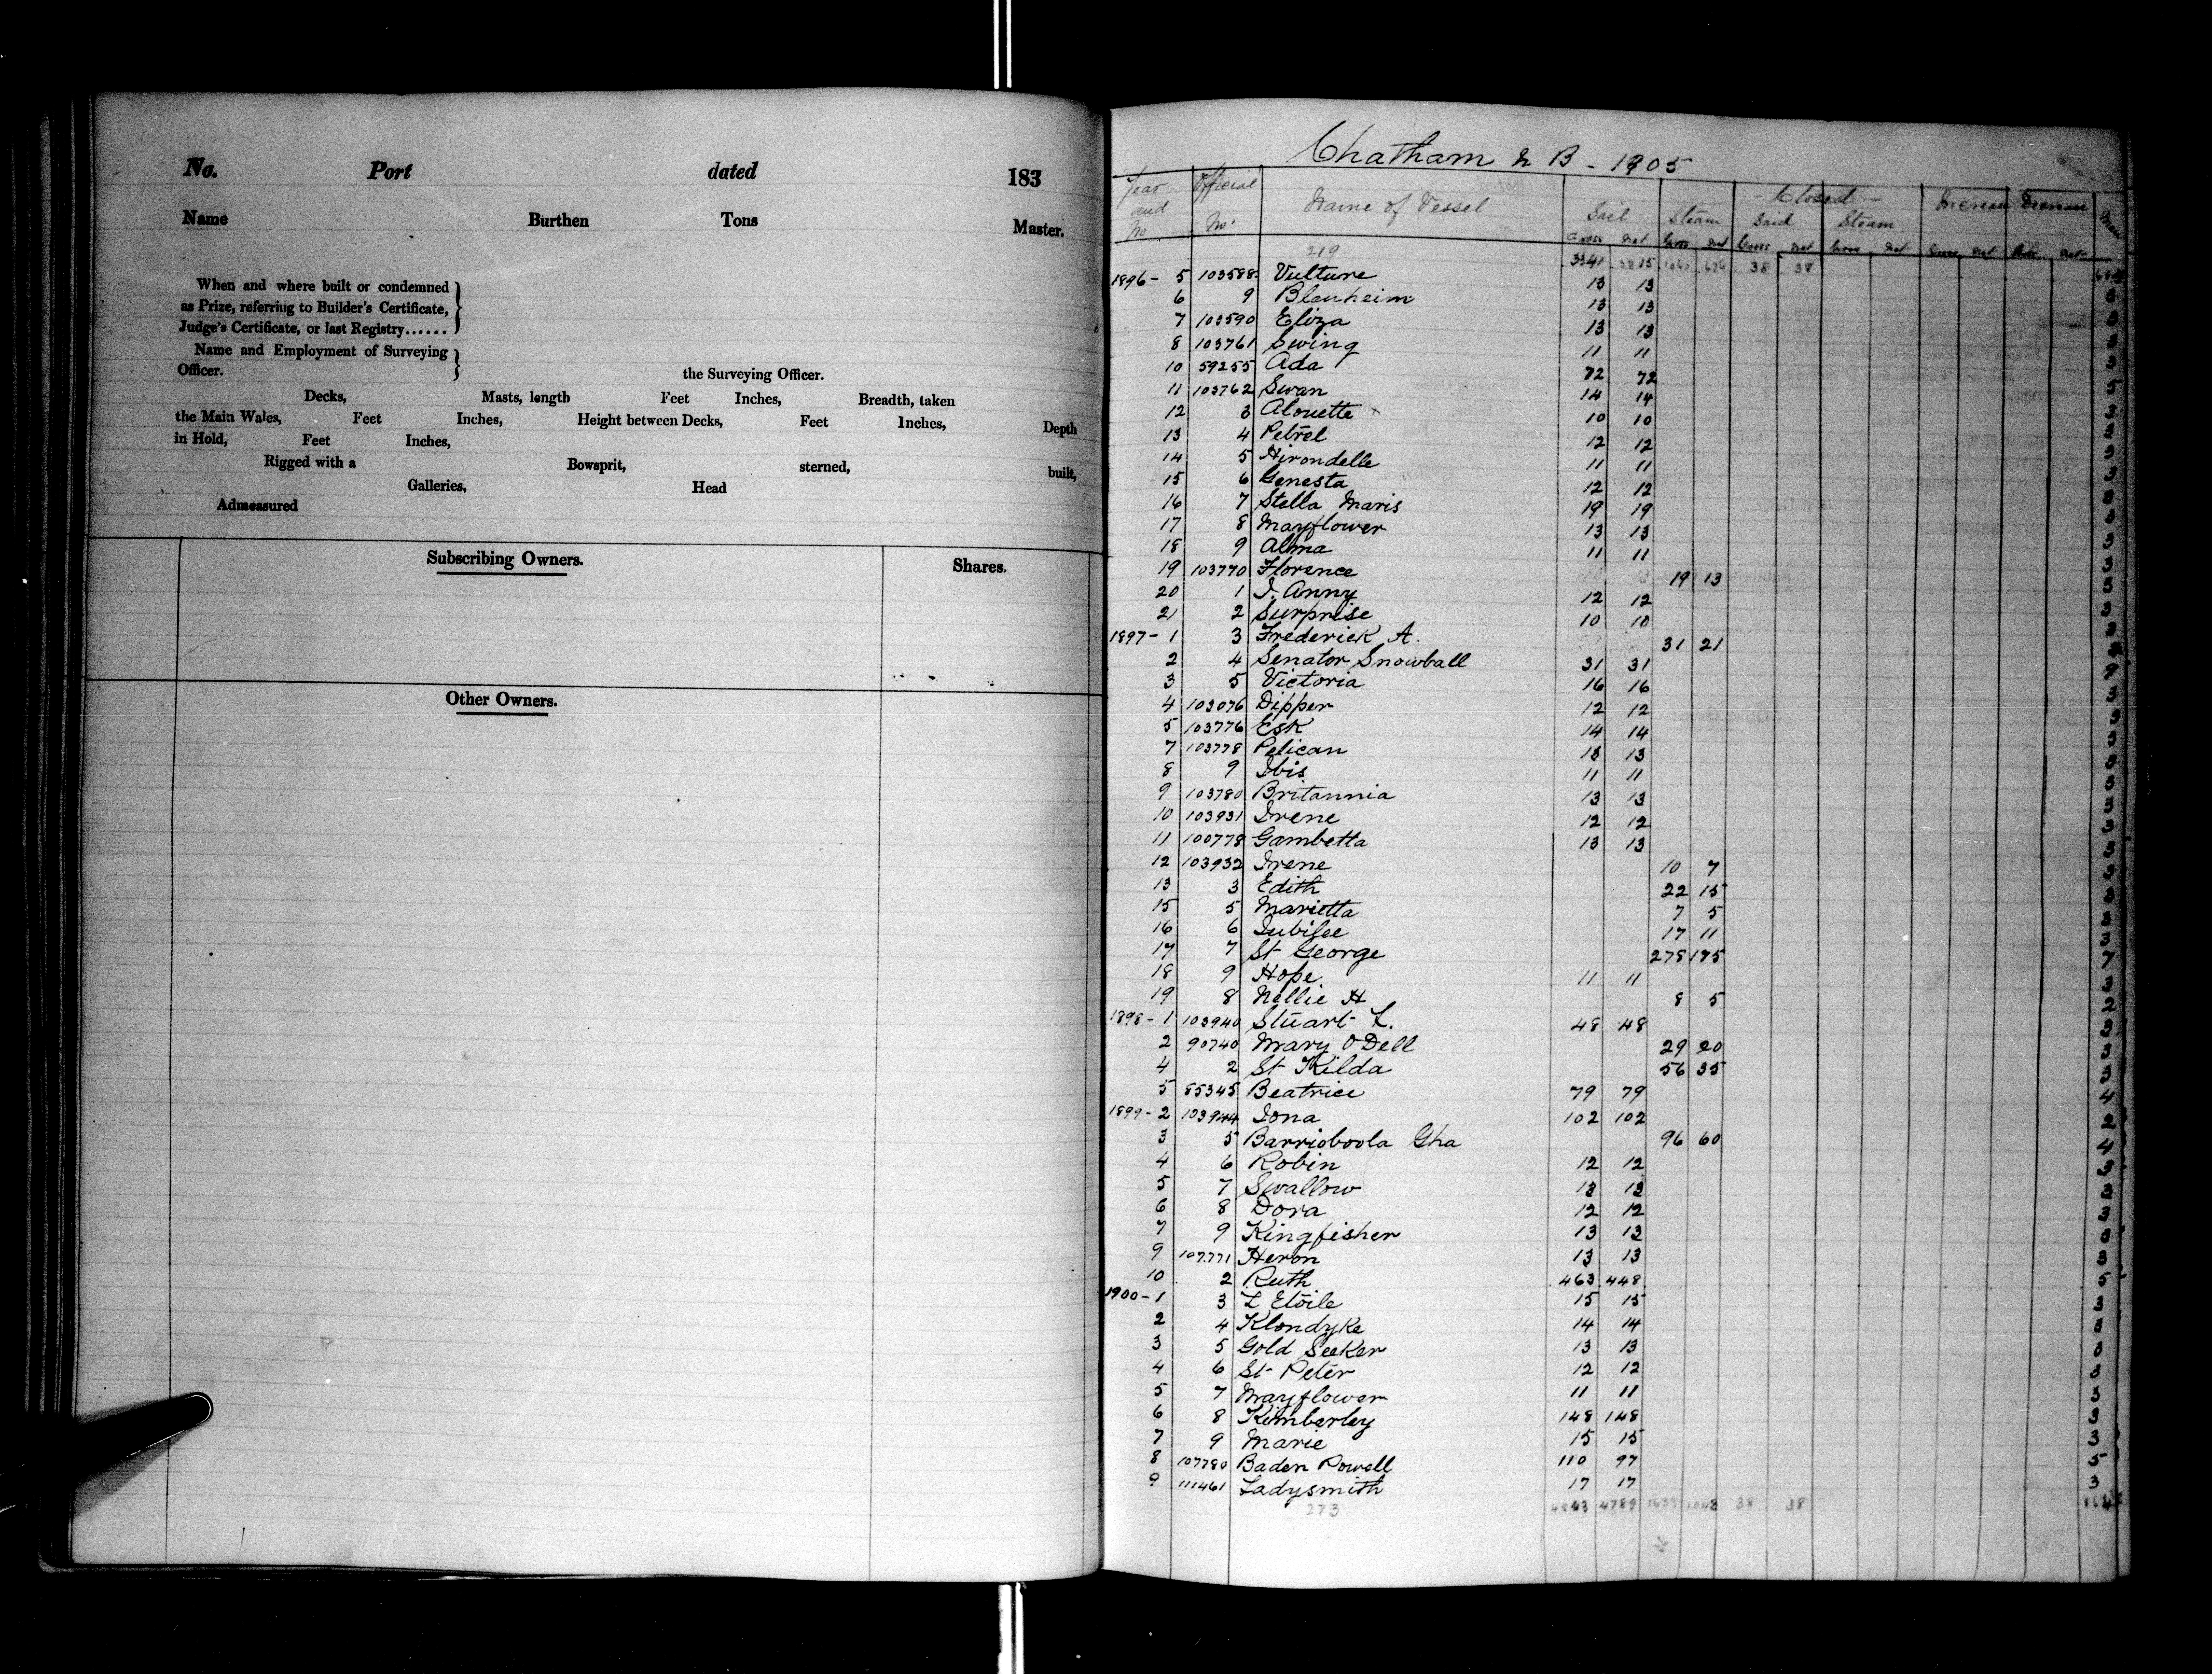 No. Port dated 183
Name Burthen Tons Master.
When and where built or condemned
as Prize, referring to Builder's Certificate,
Judge's Certificate, or last Registry......
Name and Employment of Surveying
Officer. the Surveying Officer.
Decks, Masts, length Feet Inches, Breadth, taken
the Main Wales, Feet Inches, Height between Decks, Feet Inches, Depth
in Hold, Feet Inches,
Rigged with a Bowsprit, sterned, built,
Galleries, Head
Admeasured
Subscribing Owners. Shares.
Other Owners.
Chatham N B - 1905
Year and No Official No. Name of Vessel Sail Steam Closed Sail Steam Increase Decrease Men
Gross Net Gross Net Gross Net Gross Net Gross Net Net
219 3341 1060 676 38 38
1896 - 5 103588 Vulture 13 13 3
6 9 Blenheim 13 13 3
7 103590 Eliza 13 13 3
8 103761 Swing 11 11 3
10 59255 Ada 72 72 5
11 103762 Swan 14 14 3
12 3 Alouette 10 10 3
13 4 Petrel 12 12 3
14 5 Hirondelle 11 11 3
15 6 Genesta 12 12 3
16 7 Stella Maris 19 19 3
17 8 Mayflower 13 13 3
18 9 Alma 11 11 3
19 103770 Florence 19 13 3
20 1 J. Anny 12 12 3
21 2 Surprise 10 10 3
1897 - 1 3 Frederick A. 31 21
2 4 Senator Snowball 31 31
3 5 Victoria 16 16 3
4 103076 Dipper 12 12 3
5 103776 Esk 14 14 3
7 103778 Pelican 13 13 3
8 9 Ibis 11 11 3
9 103780 Britannia 13 13 3
10 103931 Irene 12 12 3
11 100778 Gambetta 13 13 3
12 103932 Irene 10 7 3
13 3 Edith 22 15 3
15 5 Marietta 7 5 3
16 6 Jubilee 17 11 3
17 7 St George 278 175 7
18 9 Hope 11 11 3
19 8 Nellie H 8 5 2
1898 - 1 103940 Stuart L. 48 48 3
2 90740 Mary O'Dell 29 20 3
4 2 St Kilda 56 35 3
5 85345 Beatrice 79 79 4
1899 - 2 103944 Iona 102 102 2
3 5 Barrioboola Gha 96 60 4
4 6 Robin 12 12 3
5 7 Swallow 13 13 3
6 8 Dora 12 12 3
7 9 Kingfisher 13 13 3
9 107771 Heron 13 13 3
10 2 Ruth 463 448 5
1900 - 1 3 L Etoile 15 15 3
2 4 Klondyke 14 14 3
3 5 Gold Seeker 13 13 3
4 6 St Peter 12 12 3
5 7 Mayflower 11 11 3
6 8 Kimberley 148 148 3
7 9 Marie 15 15 3
8 107780 Baden Powell 110 97 5
9 111461 Ladysmith 17 17 3
273 4789 38 38